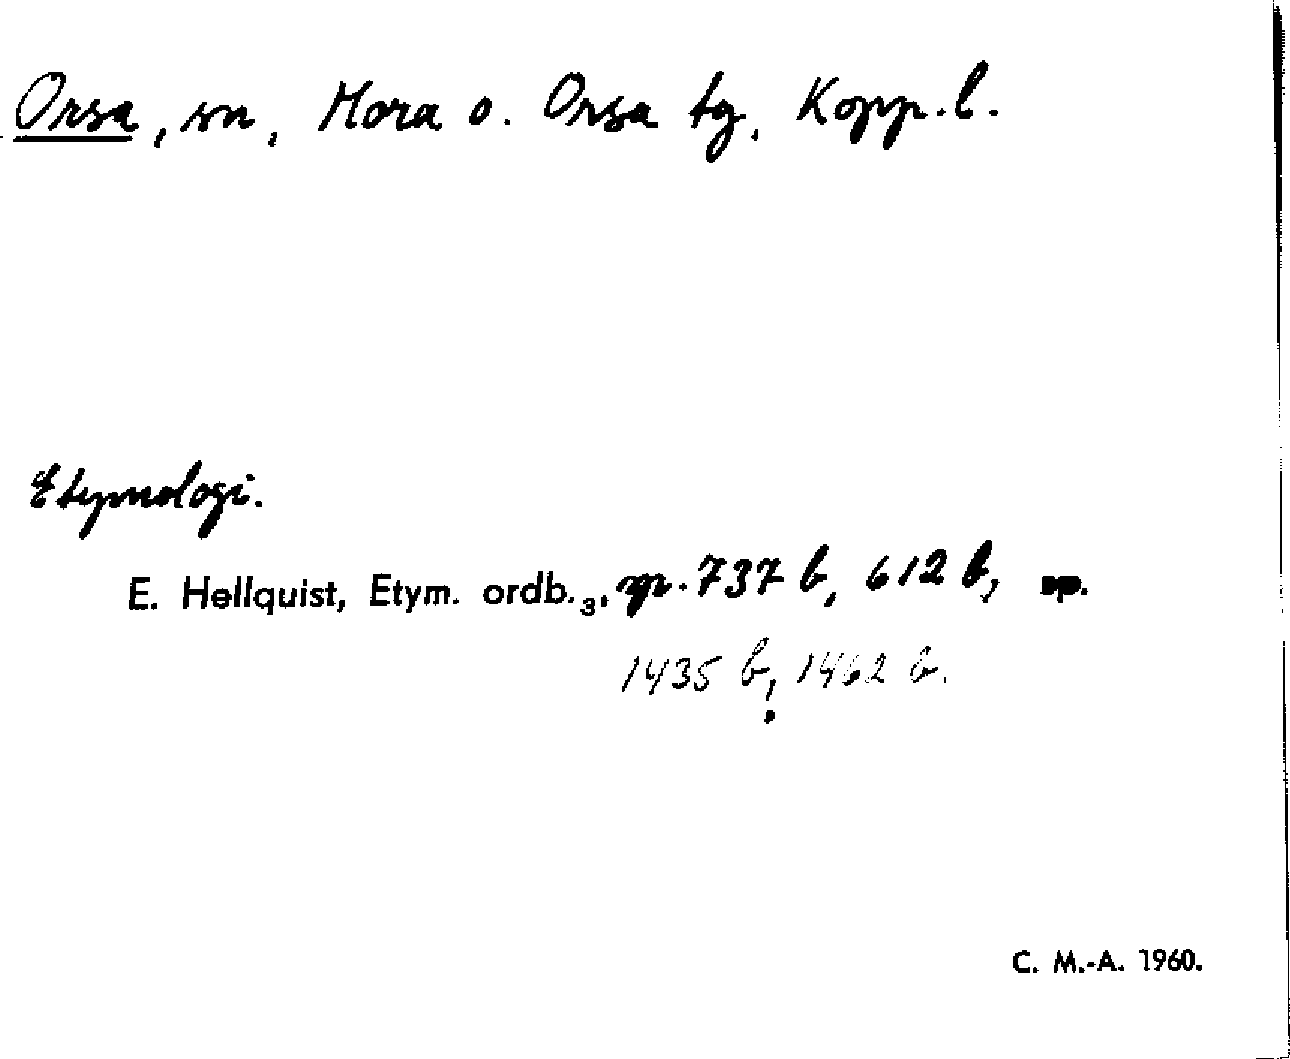 Orsa, sn, Mora o. Orsa tg, Kopp.l.
Etymologi.
E. Hellquist, Etym. ordb.3, sp. 737 b, 612 b, sp.
1435 b, 1462 b.
C. M.-A. 1960.